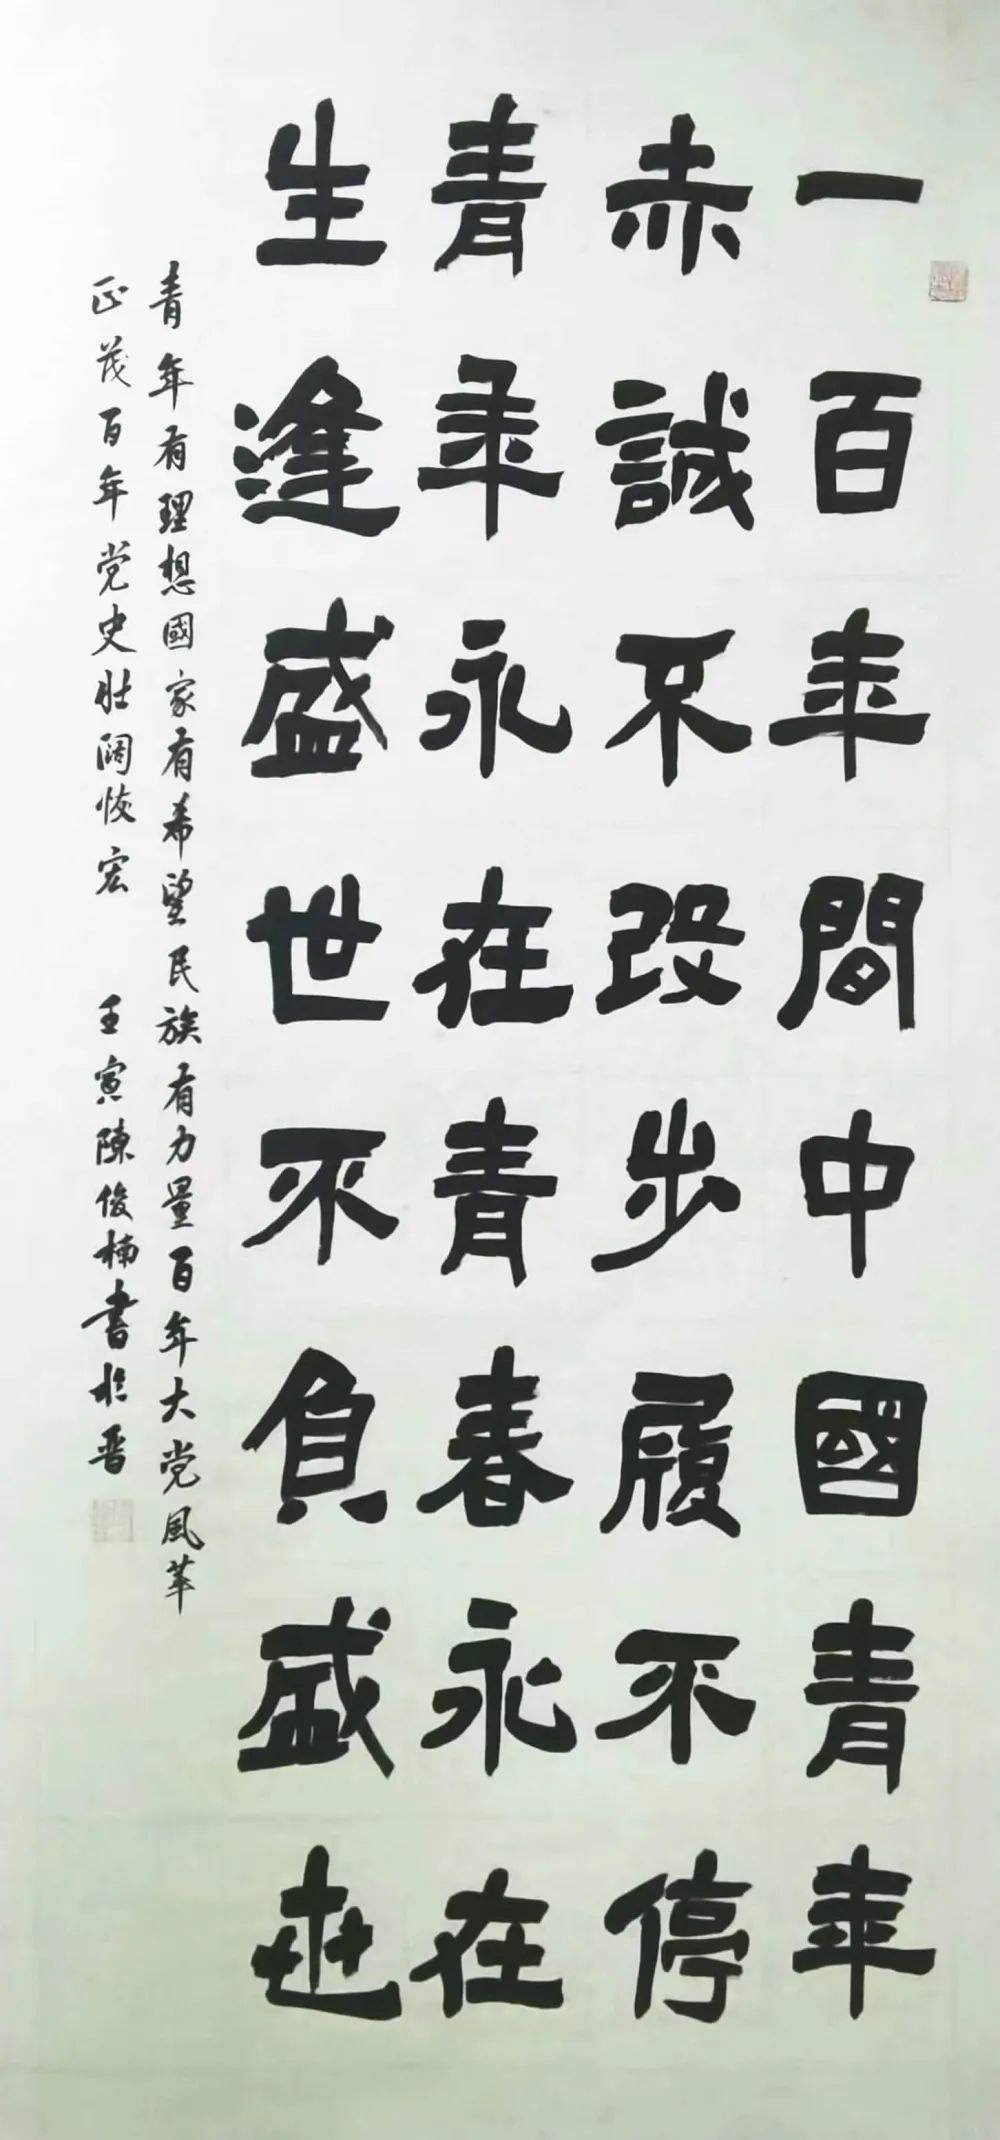 一百年間中國青年
赤誠不改步履不停
青年永在青春永在
生逢盛世不負盛世
青年有理想國家有希望民族有力量百年大党風华
正茂百年党史壮阔恢宏 壬寅陳俊楠書於晋